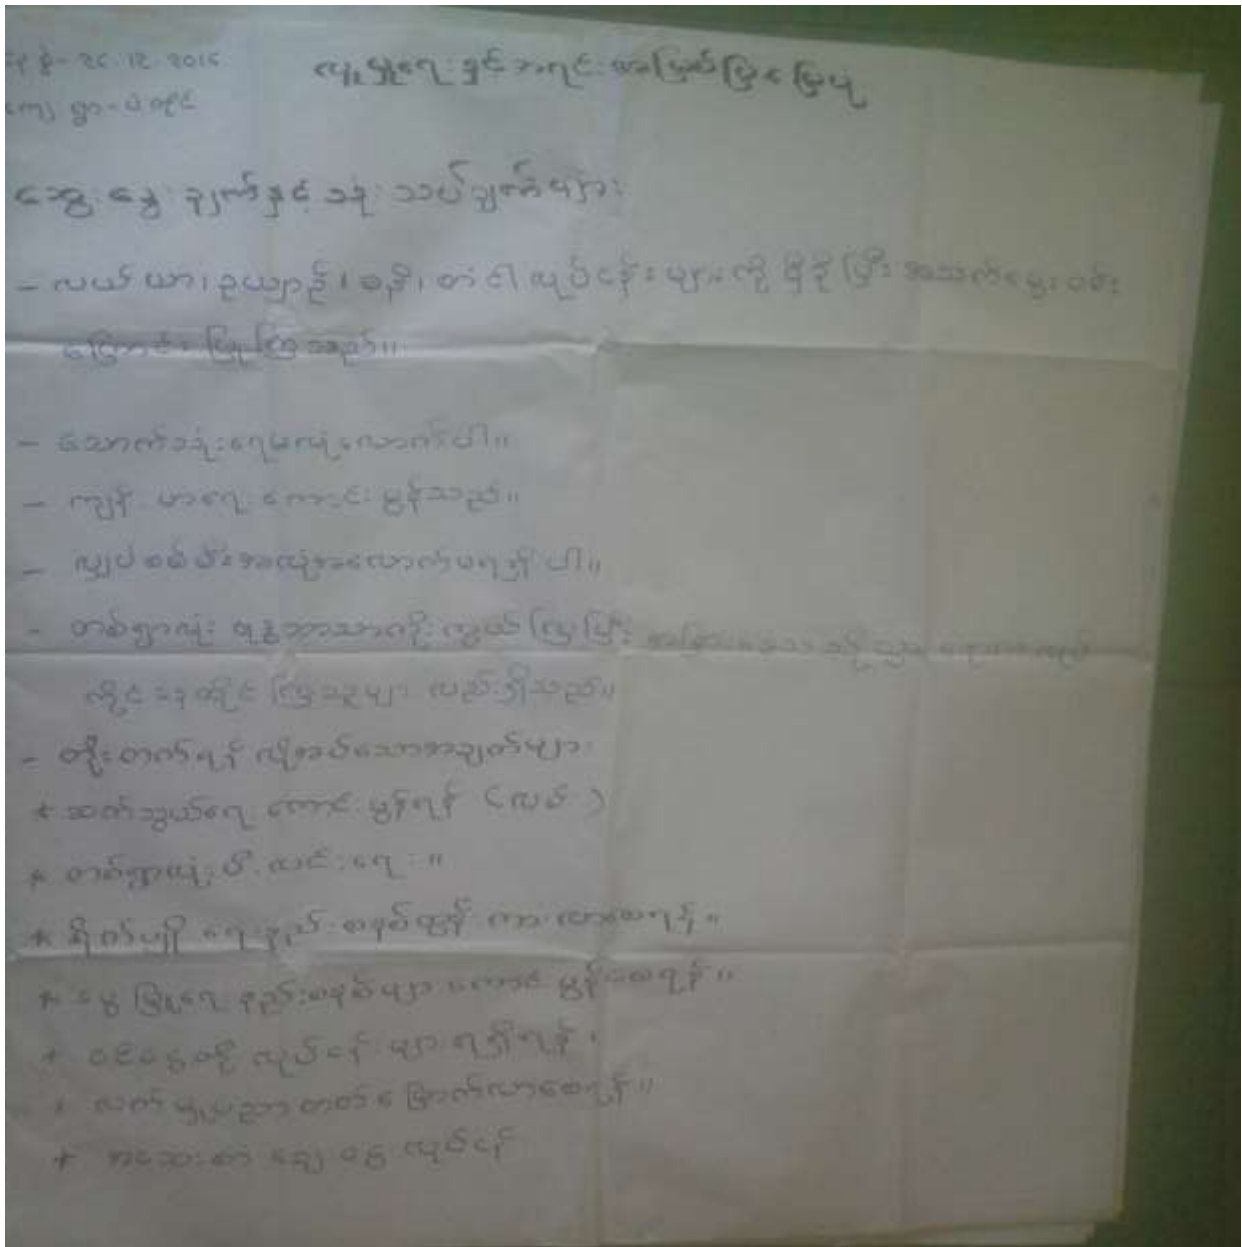 နေ့စွဲ- 26.12.2015 လူမှုရေးနှင့် အရင်းအမြစ်ပြမြေပုံ
ကျေးရွာ-
ဆွေးနွေးချက်နှင့် သုံးသပ်ချက်များ
- လယ်ယာ၊ ဥယျာဉ်၊ ၊ တံငါ လုပ်ငန်းများကို မှီခိုပြီး အသက်မွေးဝမ်း
ကြောင်းပြုကြသည်။
- သောက်သုံးရေမလုံလောက်ပါ။
- ကျန်းမာရေး ကောင်းမွန်သည်။
- လျှပ်စစ်မီးအလုံအလောက်မရရှိပါ။
- တစ်ရွာလုံး ဗုဒ္ဓဘာသာကိုးကွယ်ကြပြီး
ကြသူများ လည်းရှိသည်။
- တိုးတက်ရန် လိုအပ်သောအချက်များ
* ဆက်သွယ်ရေး ကောင်းမွန်ရန် (လမ်း)
* တစ်ရွာလုံး မီးလင်းရေး။
* စိုက်ပျိုးရေးနည်းစနစ် လာစေရန်။
* မွေးမြူရေးနည်းစနစ်များ ကောင်းမွန်စေရန်။
* ဝင်ငွေတိုး လုပ်ငန်းများ ရရှိရန်။
* လက်မှုပညာ တတ်မြောက်လာစေရန်။
* အသေးစား ချေးငွေ လုပ်ငန်း